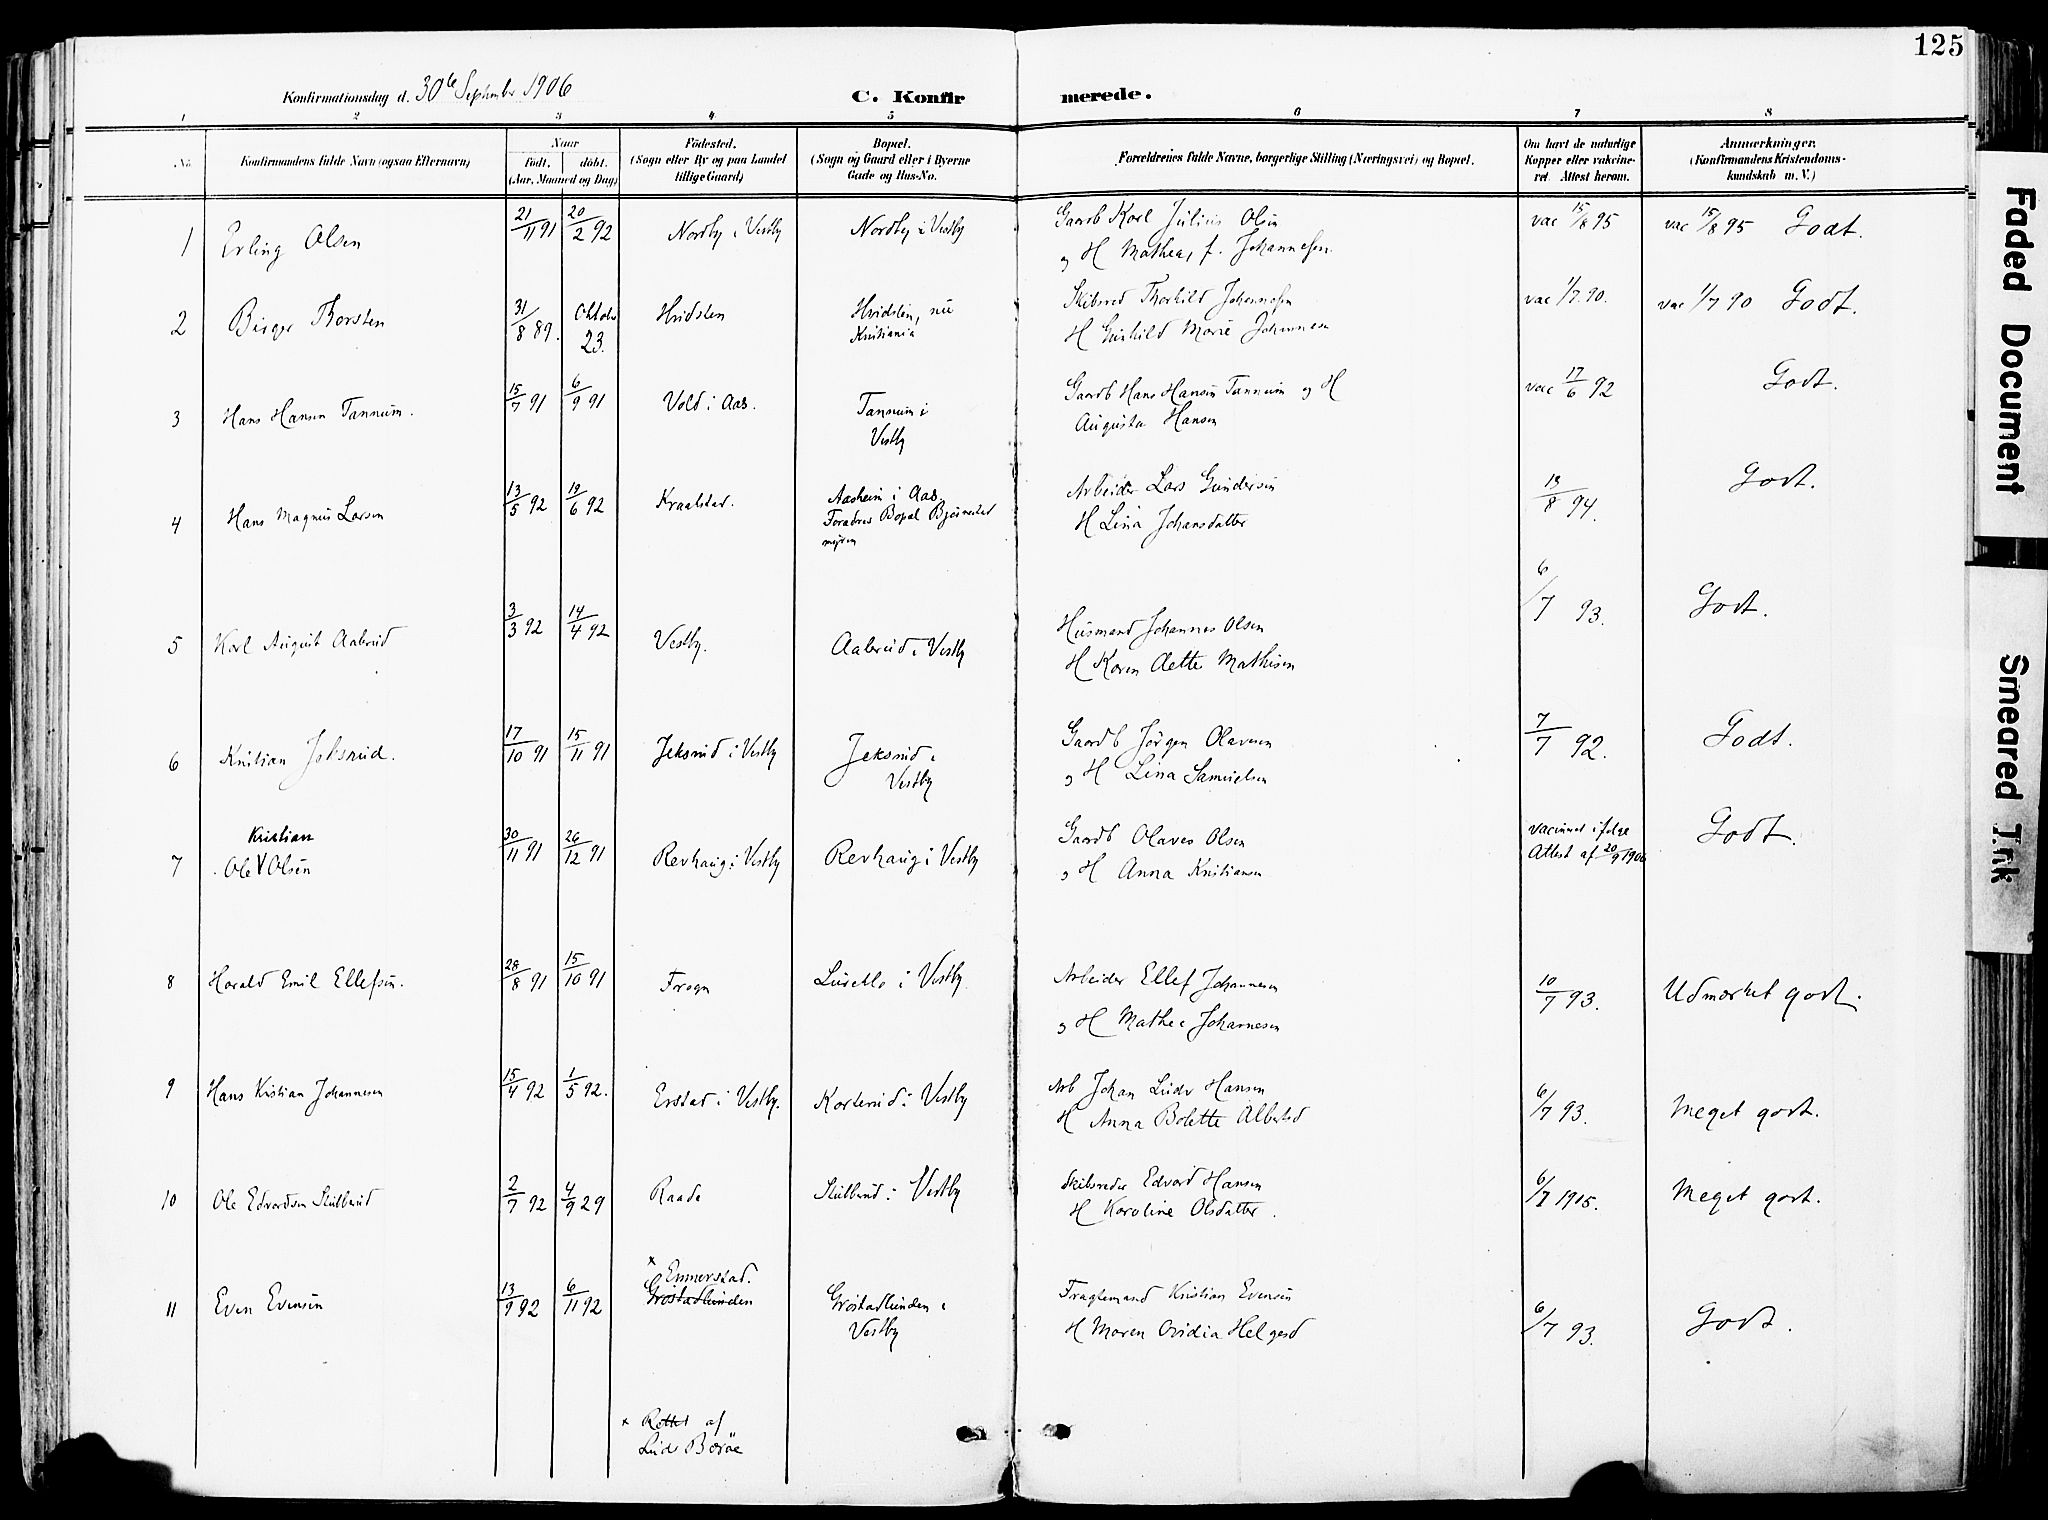 125
Konfirmationsdag d. 30te September 1906
C. Konfirmerede.
1 2 3 4 5 6 7 8
No. Konfirmandens fulde Navn (ogsaa Efternavn)
Naar
født, døbt.
(Aar, Maaned og Dag)
Fødested.
(Sogn eller By og paa Landet
tillige Gaard)
Bopæl.
(Sogn og Gaard eller i Byerne
Gade og Hus-No.
Forældrenes fulde Navne, borgerlige Stilling (Næringsvei) og Bopæl.
Om havt de naturlige
Kopper eller vakcine-
ret. Attest herom.
Anmærkninger.
(Konfirmandens Kristendoms-
kundskab m. V.)
1 Erling Olsen 21/11 91 20/2 92 Nordby i Vestby Nordby i Vestby
Gaardb Karl Julius Olsen
og H Mathea, f. Johannesen
vac 15/8 95 vac 15/8 95 Godt.
2 Birger Thorsten 31/8 89. Oktober 23. Hvidsten
Hvidsten, nu
Kristiania
Skibsred Thorkild Johannesen
H Gunhild Marie Johannesen
vac 1/7 90. vac 1/7 90 Godt.
3 Hans Hansen Tannum. 15/7 91 6/9 91 Vold i Aas.
Tannum i
Vestby
Gaardb Hans Hansen Tannum og H
Augusta Hansen
vac 17/6 92 Godt.
4 Hans Magnus Larsen 13/5 92 19/6 92 Kraakstad.
Aasheim i Aas.
Forædres Bopæl Bjørnestad
myren
Arbeider Lars Gundersen
H Lina Johansdatter
13/8 94. Godt.
5 Karl August Aaberud 3/3 92 14/4 92 Vestby. Aaberud i Vestby
Husmand Johannes Olsen
H Karen Aette Mathisen
6/7 93. Godt.
6 Kristian Jeksrud. 17/10 91 15/11 91 Jeksrud i Vestby
Jeksrud i
Vestby
Gaardb Jørgen Olavesen
og H Lina Samuelsen
7/7 92. Godt.
Kristian
7 Ole V Olsen 30/11 91 26/12 91 Revhaug i Vestby Revhaug i Vestby
Gaardb Olaves Olsen
og H Anna Kristiansen
vaccineret ifølge
Attest af 20/9 1906
Godt.
8 Harald Emil Ellefsen. 28/8 91 15/10 91 Frogn
i Vestby
Arbeider Ellef Johannesen
og H Mathea Johannesen
10/7 93. Udmærket godt.
9 Hans Kristian Johannesen 15/4 92 1/5 92. Erstad i Vestby. Korterud i Vestby
Arb Johan Hansen
H Anna Bolette Albertsd
6/7 93. Meget godt.
10 Ole Edvardsen Skutberud 2/7 92 4/9 29 Raade Skutberud i Vestby
Skibsreder Edvard Hansen
H Karoline Olsdatter.
6/7 1905. Meget godt.
x Emmerstad.
11 Even Evensen 13/9 92 6/11 92 Grøstadlunden
Grøstadlunden i
Vestby
Fragtemand Kristian Evensen
H Maren Ovidia Helgesd
6/7 93. Godt.
x Rettet af
Børøe
Faded Document
Smeared Ink